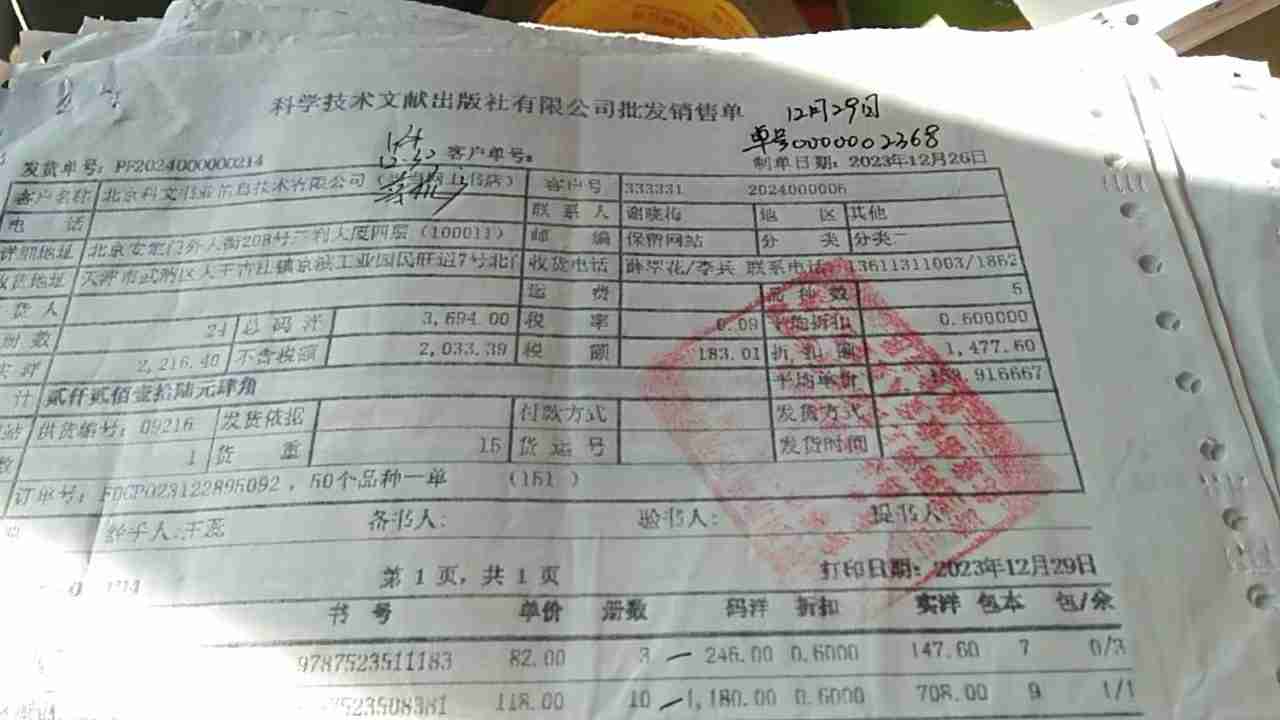 科学技术文献出版社有限公司批发销售单
12月29日
单号0000002368
发货单号：PF2024000000214 客户单号： 制单日期：2023年12月26日
客户名称 北京科文书业信息技术有限公司 客户号 333331 2024000006
电 话 联系人 谢晓梅 地 区 其他
详细地址 北京安定门外大街208号 四层（100011） 邮 编 保留网站 分 类 分类二
收货地址 天津市武清区 工业园 7号 收货电话 薛翠花/李兵 联系电话 13611311003/1862
货人 运 费 品种数 5
册数 24 总码洋 3,694.00 税 率 0.09 平均折扣 0.600000
实洋 2,216.40 不含税额 2,033.39 税 额 183.01 折扣额 1,477.60
平均单价 916667
计 贰仟贰佰壹拾陆元肆角
站 供货编号：09216 发货依据 付款方式 发货方式
数 1 货 重 15 货运号 发货时间
订单号： ，50个品种一单 （151 ）
经手人：王蕊 备书人： 验书人： 提书人：
第 1 页，共 1 页 打印日期：2023年12月29日
书 号 单价 册数 码洋 折扣 实洋 包本 包/余
9787523511183 82.00 3 246.00 0.6000 147.60 7 0/3
7523508381 118.00 10 1,180.00 0.6000 708.00 9 1/1